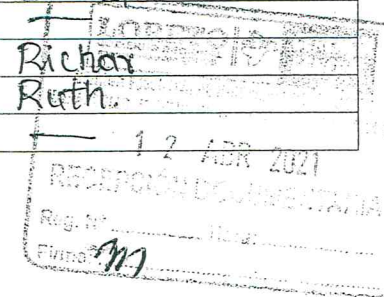 —
Richar
Ruth.
—
12 ABR 2021
RECEPCIÓN DOCUMENTARIA
Reg. Nº ............ Hora: ............
Firma: